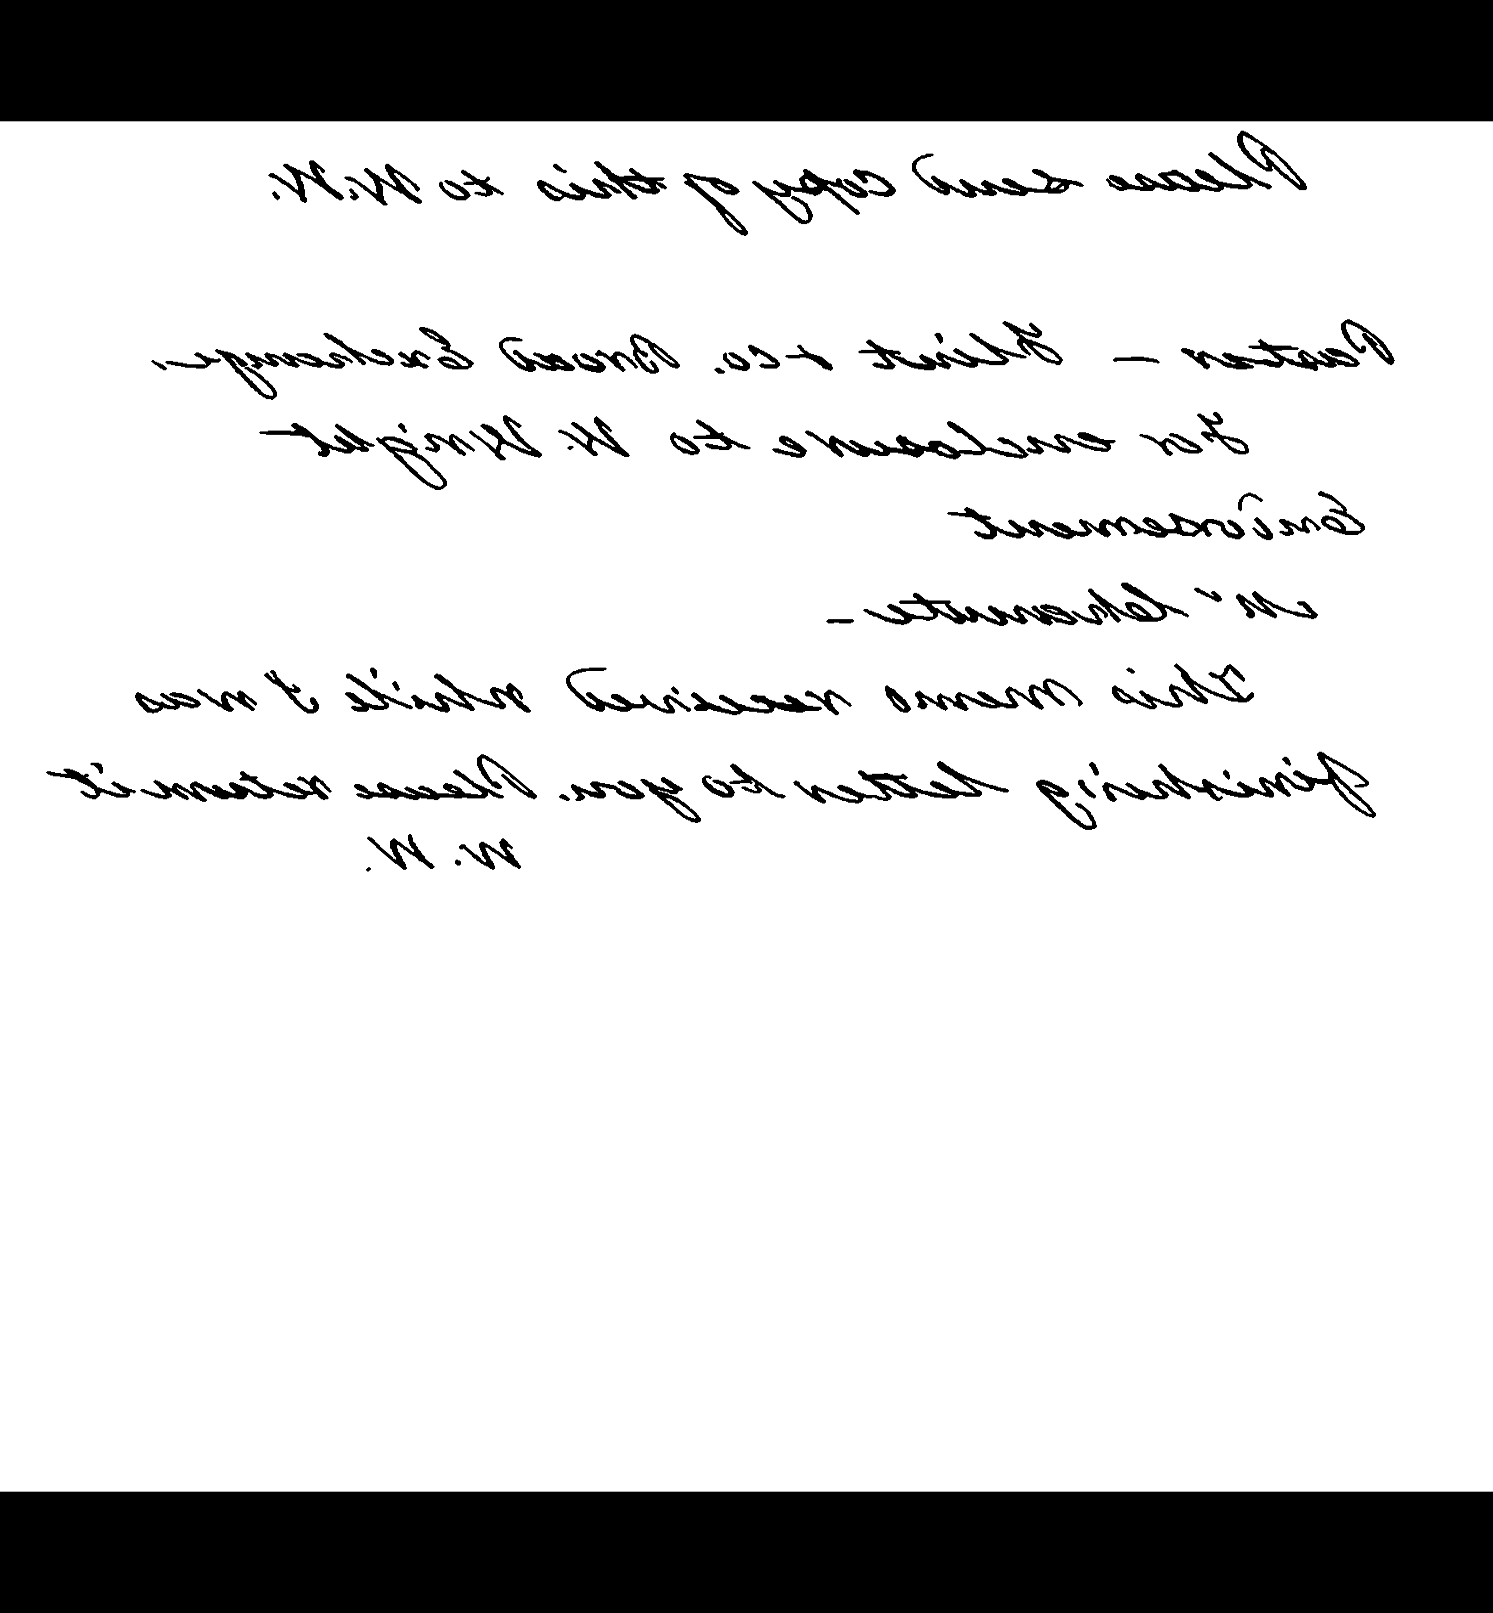 Please send copy of this to W.W.
Paster – Flint & co. Broad Exchange.
For enclosure to W. Wright
Endorsement
Mr Lehrenute –
This memo received while I was
finishing letter to you. Please return it
W. W.